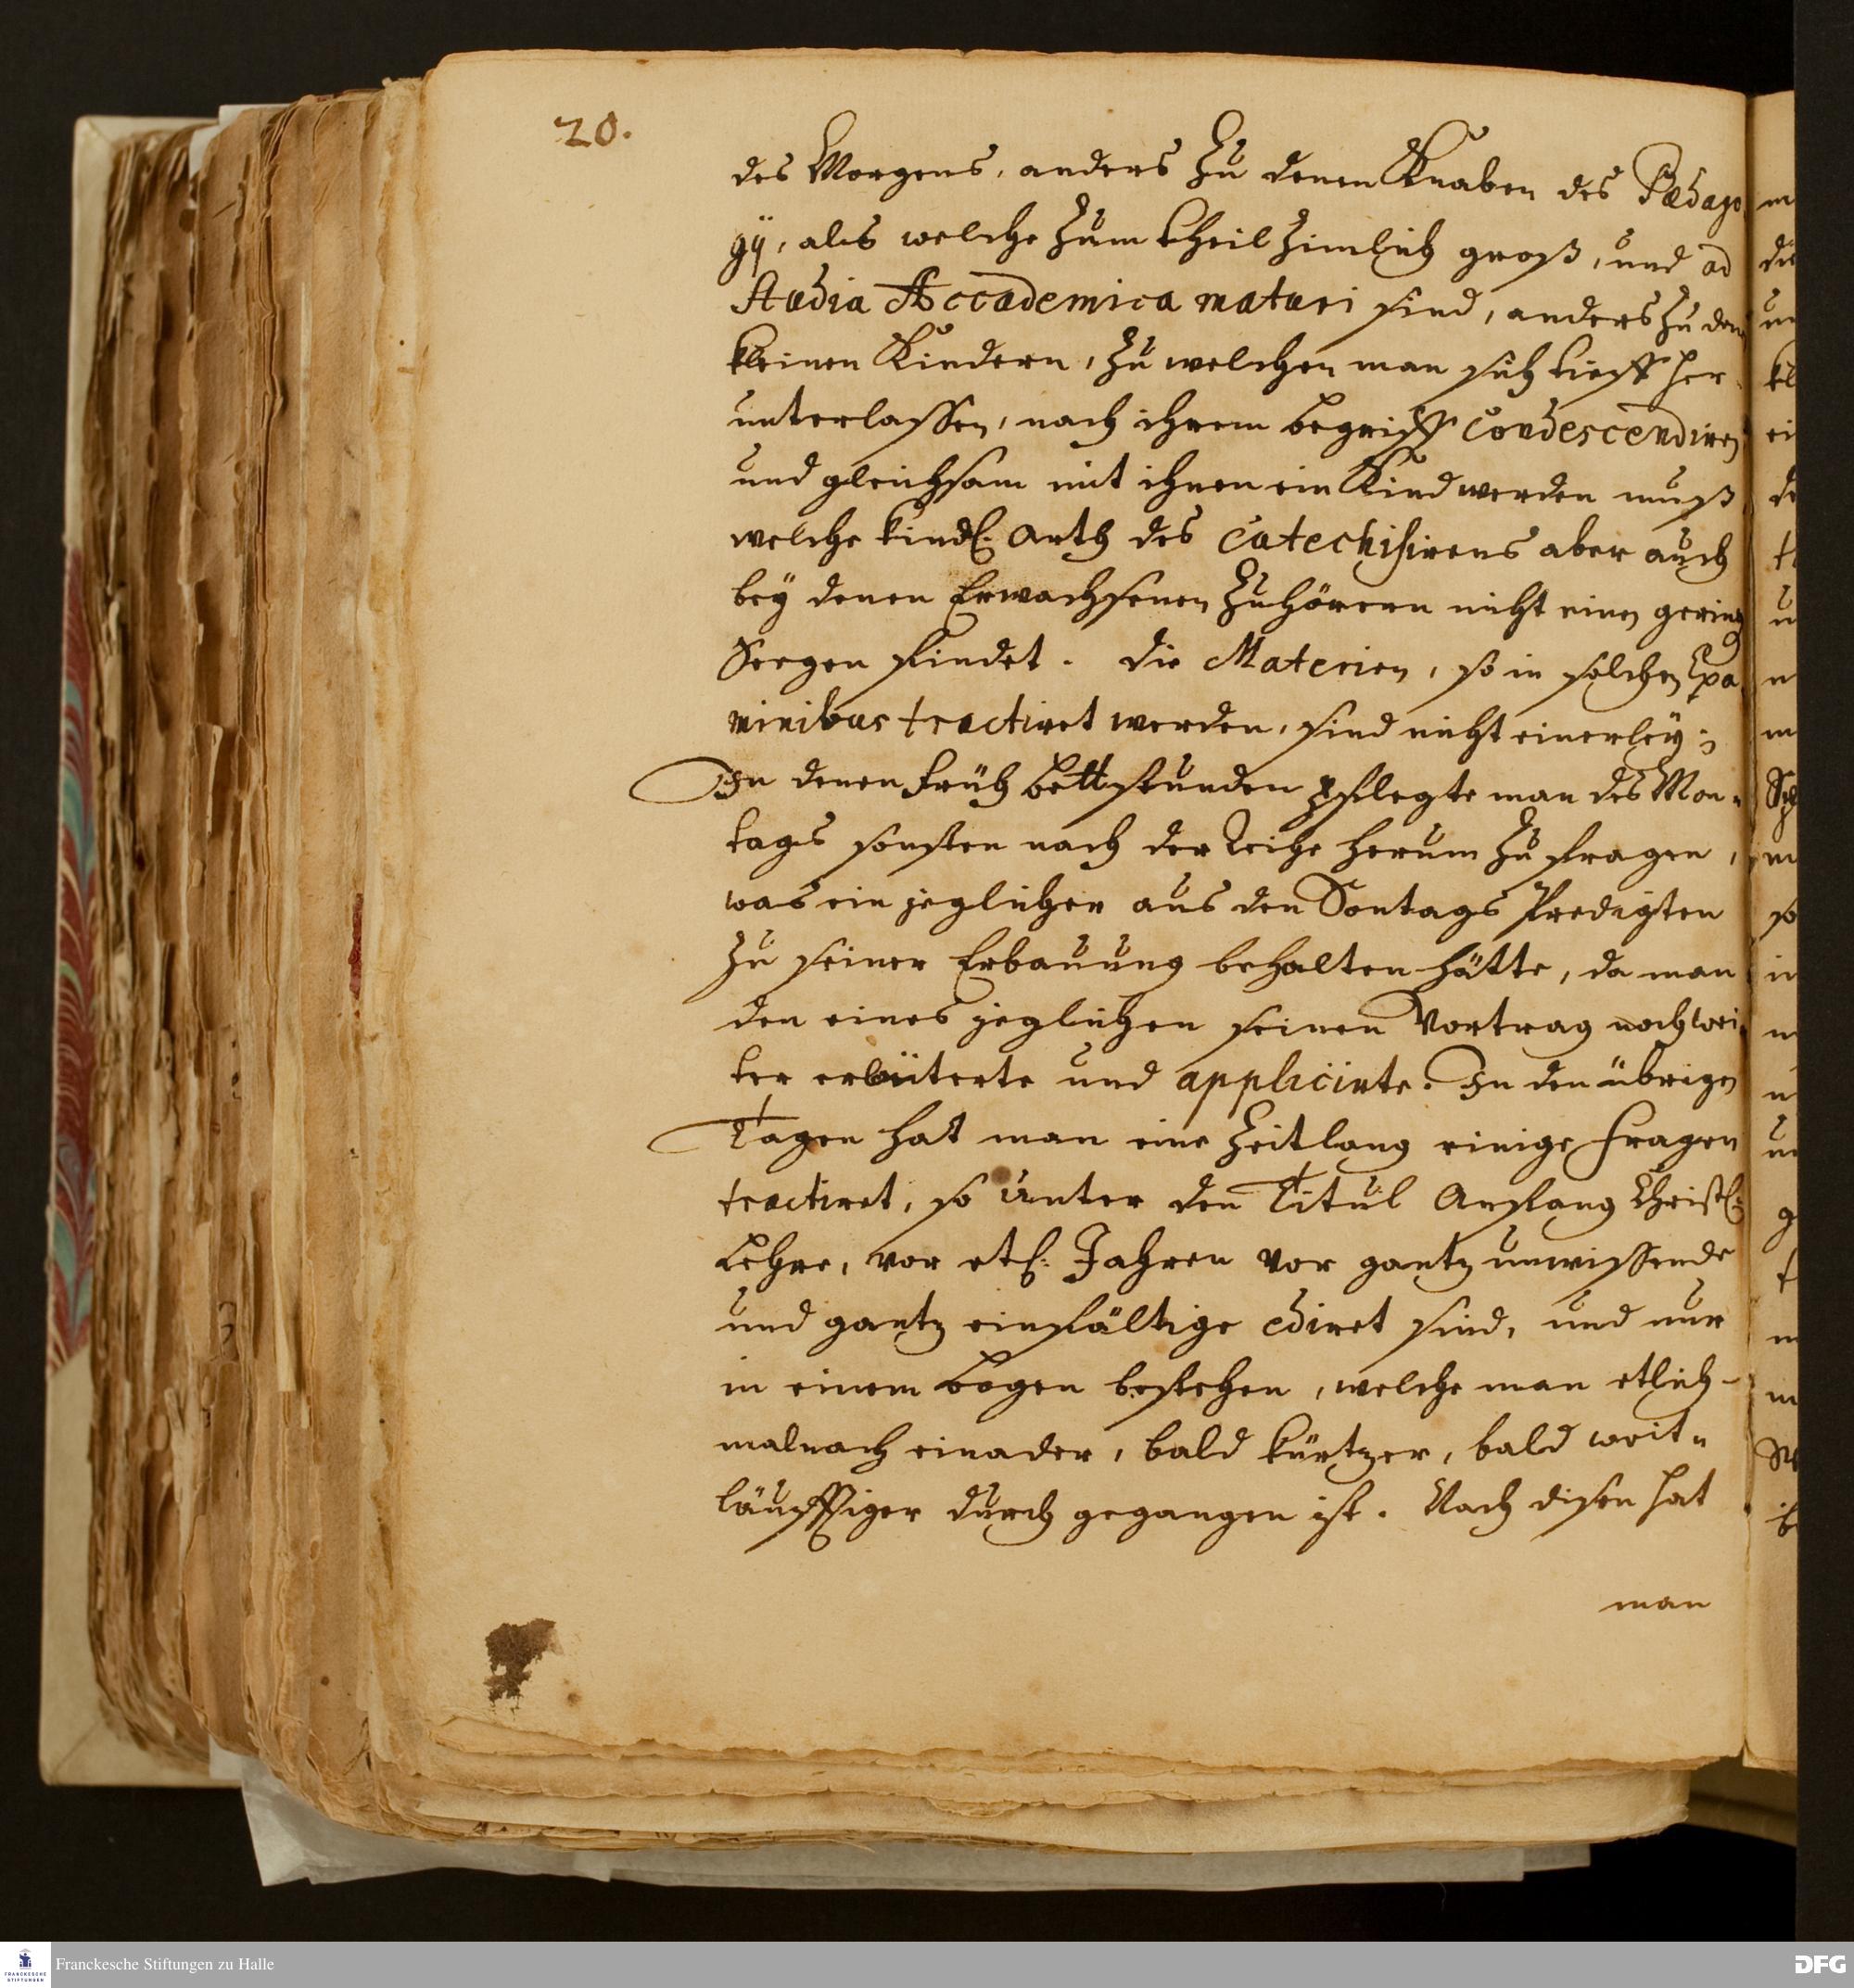 20.
des Morgens, anders zu denen Knaben des Pædago
gÿ, als welche zum theil zimlich groß, und ad
studia Accademica maturi sind, anders zu den
kleinen Kindern, zu welchen man sich tieff her
unterlassen, nach ihrem begriff condescendiren
und gleichsam mit ihnen ein Kind werden muß
welche kindl. arth des catechisirens aber auch
bey denen Erwachsenen Zuhörern nicht einen gering
Seegen findet. Die Materien, so in solchen Exa
minibus tractiret werden, sind nicht einerley;
In denen früh bettstunden pflegte man des Mon-
tags sonsten nach der Reihe herum zu fragen,
was ein jeglicher aus den Sontags Predigten
zu seiner Erbauung behalten hätte, da man
den eines jeglichen seinen Vortrag noch wei
ter erläuterte und applicirte. In den übrigen
Tagen hat man eine Zeitlang einige fragen
tractiret, so unter den Titul Anfang Christl.
Lehre, vor etl. Jahren vor gantz unwissende
und gantz einfältige ediret sind, und nur
in einem bogen bestehen, welche man etlich-
mal nach einader, bald kürtzer, bald weit-
läufftiger durch gegangen ist. Nach disen hat
man
Franckesche Stiftungen zu Halle
FRANCKESCHE
STIFTUNGEN
DFG